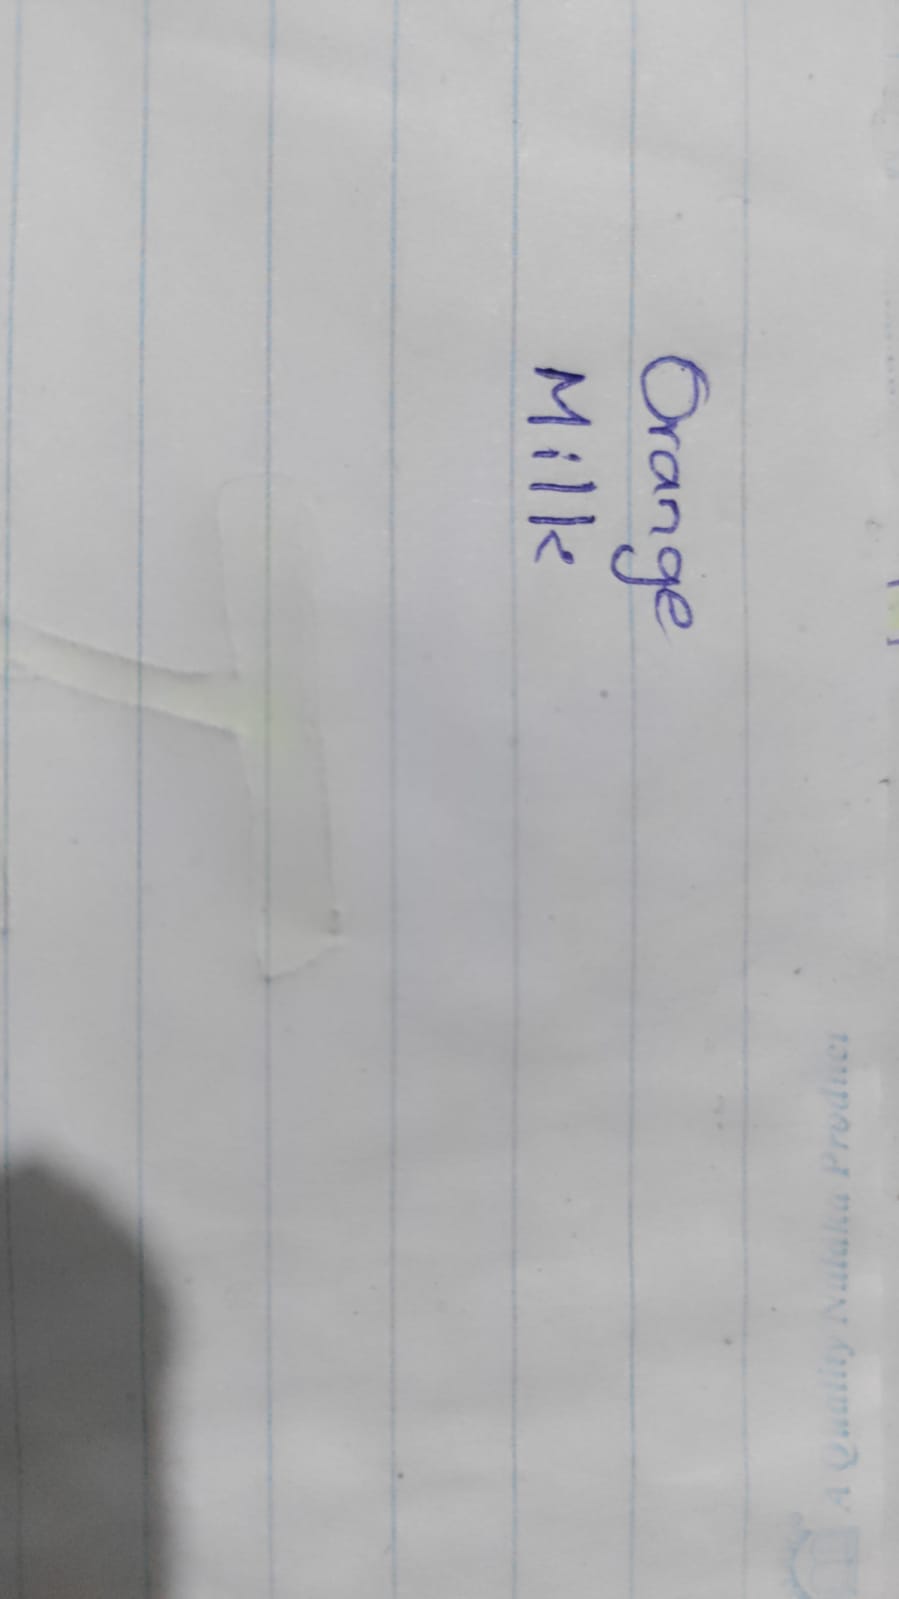 Orange
Milk
A Quality Nataka Product